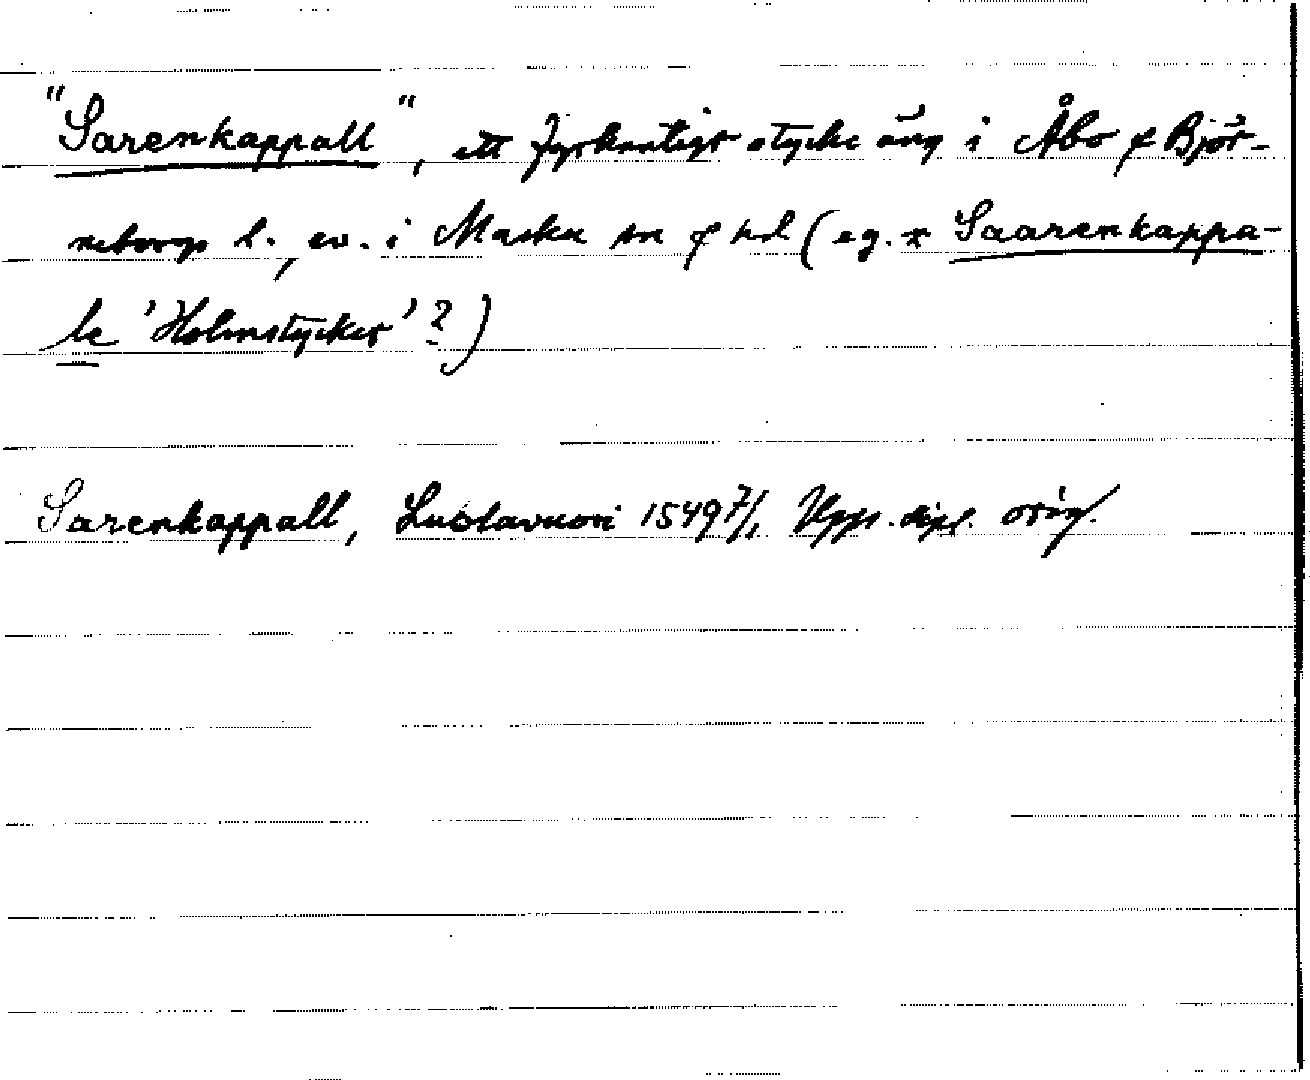 "Sarenkappall", ett fyrkantigt stycke äng i Åbo o Björ-
neborgs l., ev. i Masku sn o hd (eg. * Saarenkappa-
le 'Holmstycket'?)
Sarenkappall, Lustavuori 1549 7/1 Upps. dipl. orig.